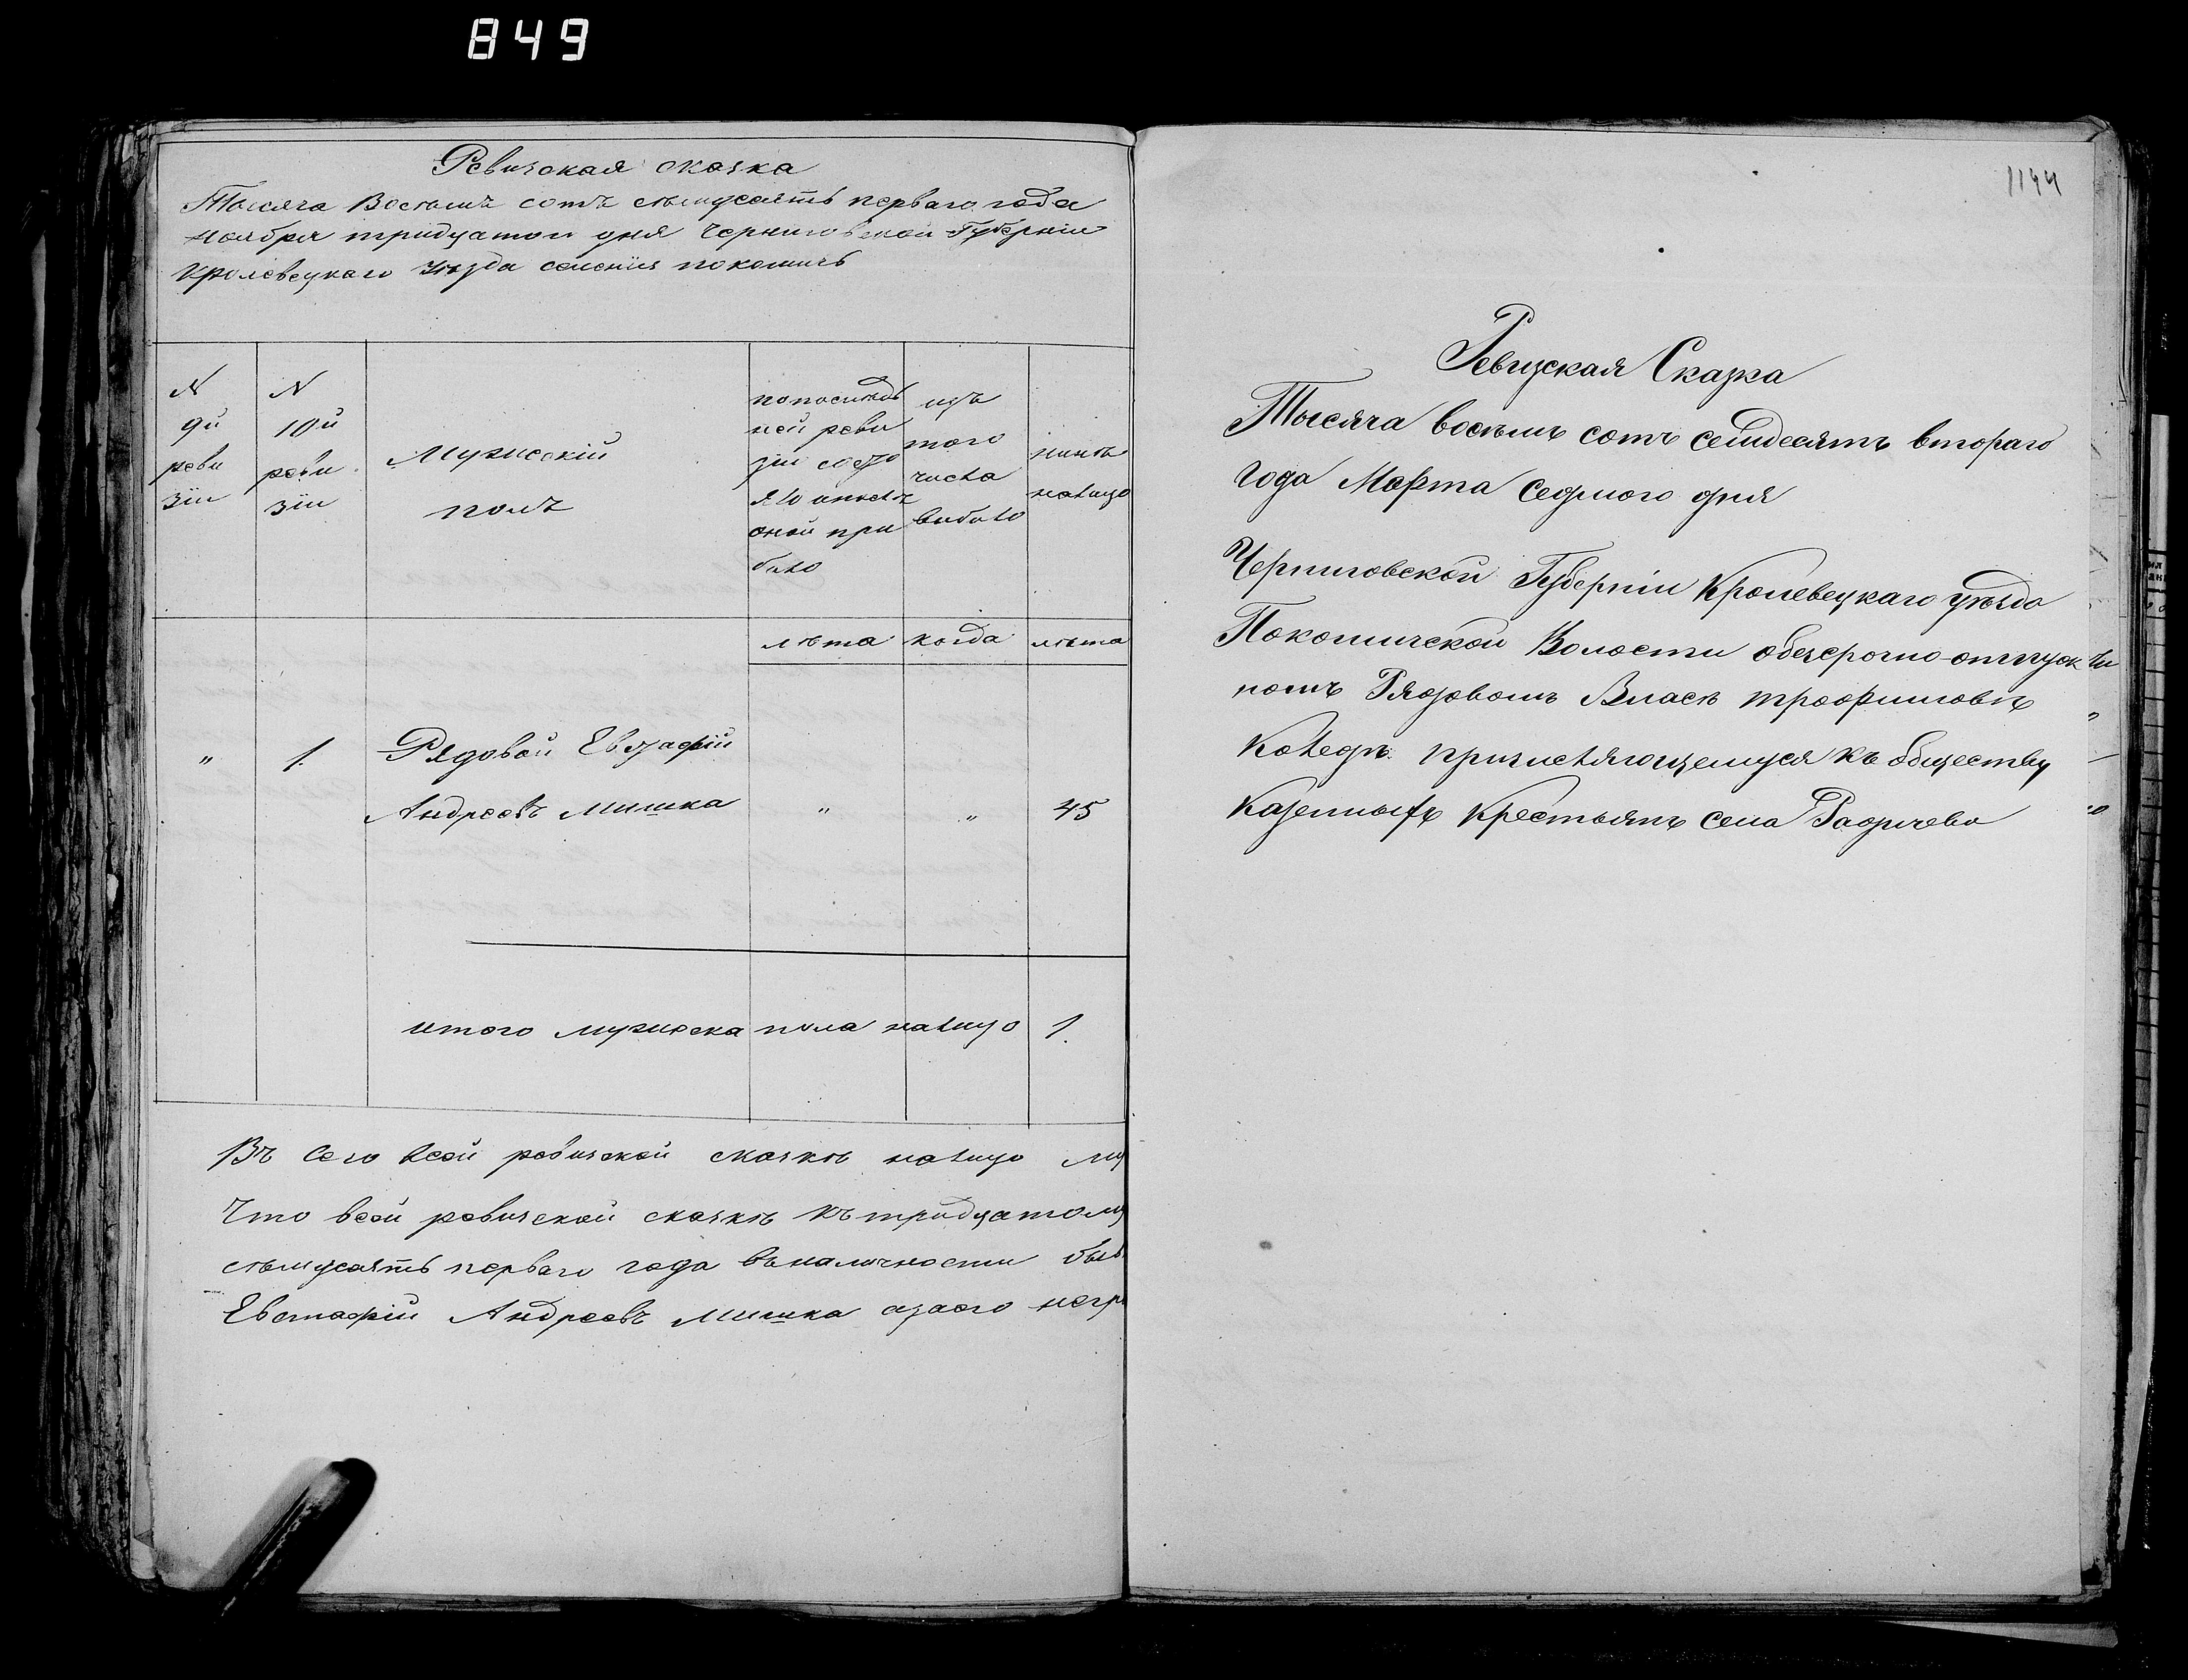 849
Ревизская сказка
Тысяча Восѣмъ сотъ сѣмдсятъ перваго года
ноября тридцатои дня Черниговской Губерніи
Кролевецкаго Уѣзда селенія покошичъ
N
9й
реви
зіи
N
10й
реви
зіи
Мужескій
полъ
попослѣд
ней реви
зіи состо
яло ипослѣ
оной при
было
изъ
того
числа
выбыло
нинѣ
налицо
лѣта когда лѣта
" 1. Рядовой Евстафій
Андреевъ Мишка " " 45
итого мужеска пола налицо 1.
Въ Сего всей ревизской сказкѣ налицо му
Что всей ревизской сказкѣ къ тридцатому
сѣмдсятъ перваго года въналичности был
Евстафій Андреевъ Мишка азаего негр
1144
Ревизская Сказка
Тысяча восѣмъ сотъ семдесятъ втораго
года Марта седмого дня
Черниговской Губерніи Кролевецкаго уѣзда
Покошичской Волости обезсрочно-отпуск
номъ Рядовомъ Власѣ трофимовѣ
Коледѣ причисляющемуся къ обществу
Казенныхъ Крестьянъ села Радичева